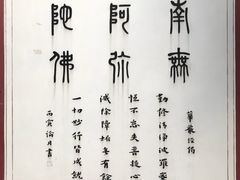 南無
阿弥
陀佛
華嚴經偈
勤修清净波羅蜜
恒不忘失菩提心
滅除障垢無有餘
一切妙行皆成就
丙寅 月書